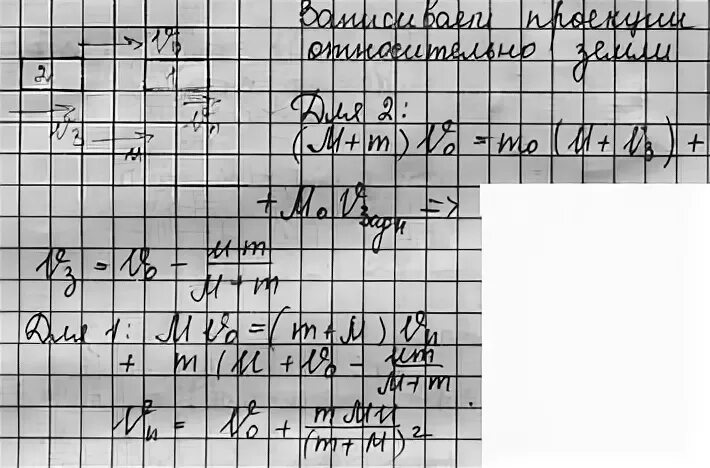 Записываем проекции
относительно земли
2 1 v₀
v₃ u vп
Для 2:
(M+m) v₀ = m₀ (u + v₃) +
+ M₀ v задн =>
v₃ = v₀ - um/(M+m)
Для 1: M v₀ = (m+M) vп
+ m (u + v₀ - um/(M+m)
vп = v₀ + mMu/(m+M)²